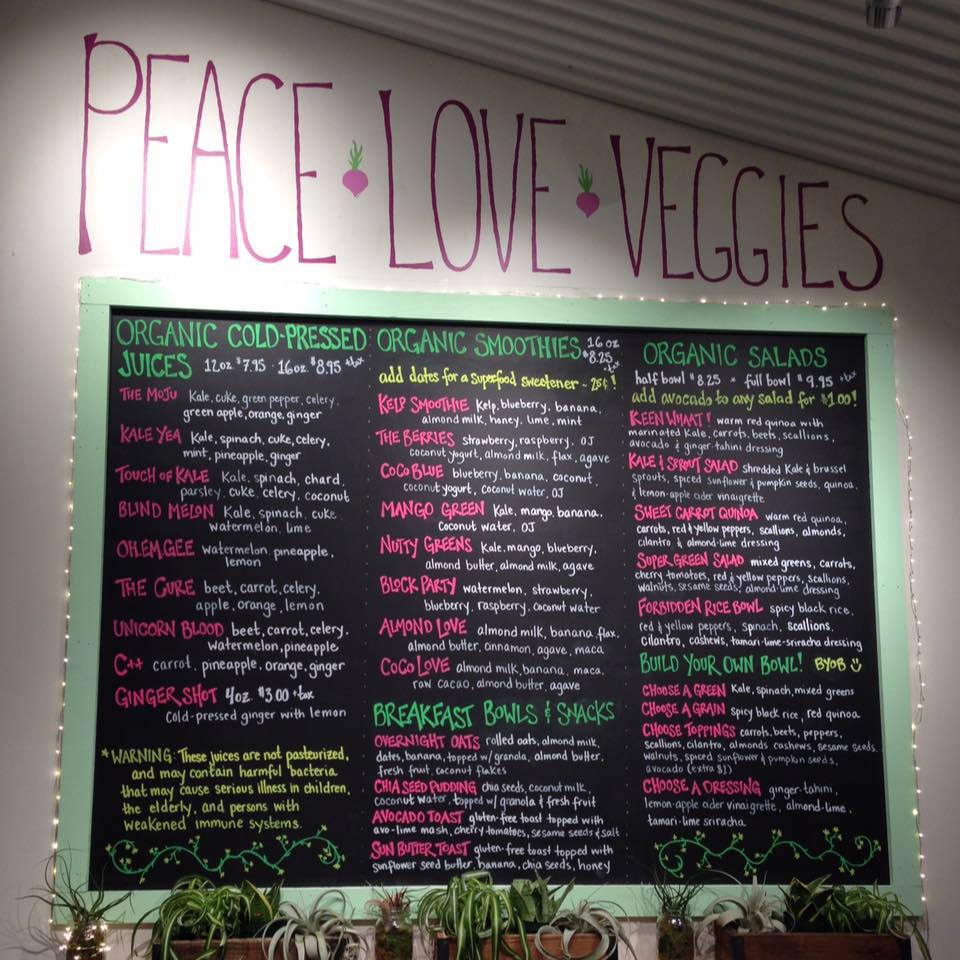 PEACE LOVE VEGGIES
ORGANIC COLD-PRESSED
JUICES 12oz $7.95 · 16oz $8.95 +tax
THE MOJU Kale, cuke, green pepper, celery,
green apple, orange, ginger
KALE YEA Kale, spinach, cuke, celery,
mint, pineapple, ginger
TOUCH OF KALE Kale, spinach, chard,
parsley, cuke, celery, coconut
BLIND MELON Kale, spinach, cuke
watermelon, lime
OH.EM.GEE watermelon, pineapple,
lemon
THE CURE beet, carrot, celery,
apple, orange, lemon
UNICORN BLOOD beet, carrot, celery,
watermelon, pineapple
C++ carrot, pineapple, orange, ginger
GINGER SHOT 4oz. $3.00 +tax
Cold-pressed ginger with lemon
*WARNING: These juices are not pasteurized,
and may contain harmful bacteria
that may cause serious illness in children,
the elderly, and persons with
weakened immune systems.
ORGANIC SMOOTHIES 16 oz
$8.25 +tax
add dates for a superfood sweetener ~ 25¢!
KELP SMOOTHIE Kelp, blueberry, banana,
almond milk, honey, lime, mint
THE BERRIES strawberry, raspberry, OJ
coconut yogurt, almond milk, flax, agave
COCO BLUE blueberry, banana, coconut,
coconut yogurt, coconut water, OJ
MANGO GREEN Kale, mango, banana,
Coconut water, OJ
NUTTY GREENS Kale, mango, blueberry,
almond butter, almond milk, agave
BLOCK PARTY watermelon, strawberry,
blueberry, raspberry, coconut water
ALMOND LOVE almond milk, banana, flax,
almond butter, cinnamon, agave, maca
COCO LOVE almond milk, banana, maca,
raw cacao, almond butter, agave
BREAKFAST BOWLS & SNACKS
OVERNIGHT OATS rolled oats, almond milk,
dates, banana, topped w/ granola, almond butter,
fresh fruit, coconut flakes
CHIA SEED PUDDING chia seeds, coconut milk,
coconut water, topped w/ granola & fresh fruit
AVOCADO TOAST gluten-free toast topped with
avo-lime mash, cherry tomatoes, sesame seeds & salt
SUN BUTTER TOAST gluten-free toast topped with
sunflower seed butter, banana, chia seeds, honey
ORGANIC SALADS
half bowl $8.25 - full bowl $9.95 +tax
add avocado to any salad for $1.00!
KEEN WHAT! warm red quinoa with
marinated Kale, carrots, beets, scallions,
avocado & ginger-tahini dressing
KALE & SPROUT SALAD shredded Kale & brussel
sprouts, spiced sunflower & pumpkin seeds, quinoa,
& lemon-apple cider vinaigrette
SWEET CARROT QUINOA warm red quinoa,
carrots, red & yellow peppers, scallions, almonds,
cilantro & almond-lime dressing
SUPER GREEN SALAD mixed greens, carrots,
cherry tomatoes, red & yellow peppers, scallions,
walnuts, sesame seeds, almond-lime dressing
FORBIDDEN RICE BOWL spicy black rice,
red & yellow peppers, spinach, scallions,
cilantro, cashews, tamari-lime-sriracha dressing
BUILD YOUR OWN BOWL! BYOB
CHOOSE A GREEN Kale, spinach, mixed greens
CHOOSE A GRAIN spicy black rice, red quinoa
CHOOSE TOPPINGS carrots, beets, peppers,
scallions, cilantro, almonds, cashews, sesame seeds,
walnuts, spiced sunflower & pumpkin seeds,
avocado (extra $1)
CHOOSE A DRESSING ginger-tahini,
lemon-apple cider vinaigrette, almond-lime,
tamari-lime sriracha